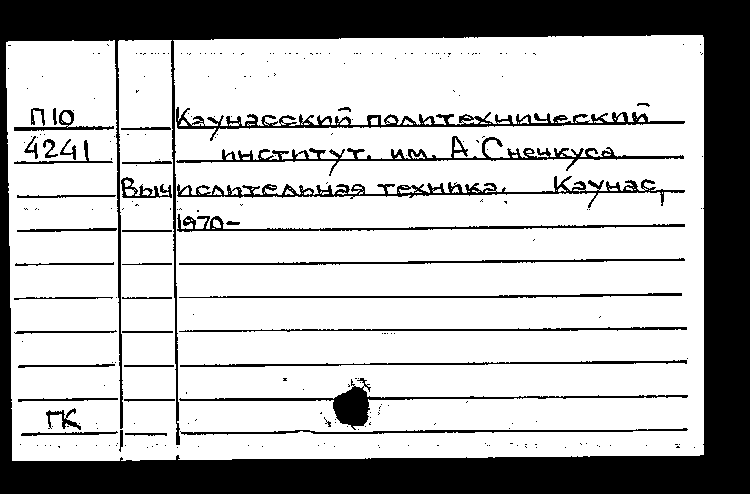 П10 Каунасский политехнический
4241 институт. им. А. Снечкуса
Вычислительная техника. Каунас,
1970-
ГК